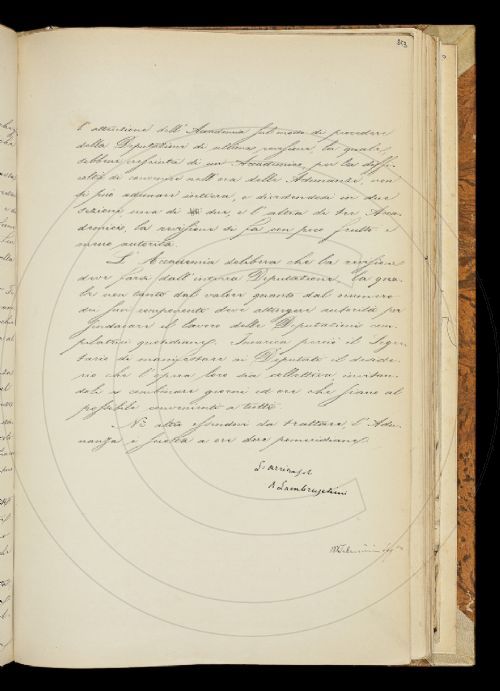 853
l'attenzione dell'Accademia sul modo di procedere
della Deputazione di ultima revisione la quale
sebbene di un Accademico, per la diffi-
coltà di convenire nell'ora delle Adunanze, non
si può adunare intiera, e dividendosi in due
sezioni una di due, e l'altra di tre Acca-
demici, la revisione si fa con poco frutto e
meno autorità.
L'Accademia delibera che la revisione
deve farsi dall'intiera Deputazione, la qua-
le non tanto dal valore quanto dal numero
dei suoi componenti deve attingere autorità per
sindacare il lavoro delle Deputazioni com-
pilatrici quotidiane. Incarica perciò il Segre-
tario di manifestare ai Deputati il deside-
rio che l'opera loro sia collettiva invitan-
doli a combinare giorni ed ore che siano al
possibile convenienti a tutti.
Nè altro essendovi da trattare, l'Adu-
nanza è sciolta a ore due pomeridiane.
L'arciconsolo
R Lambruschini